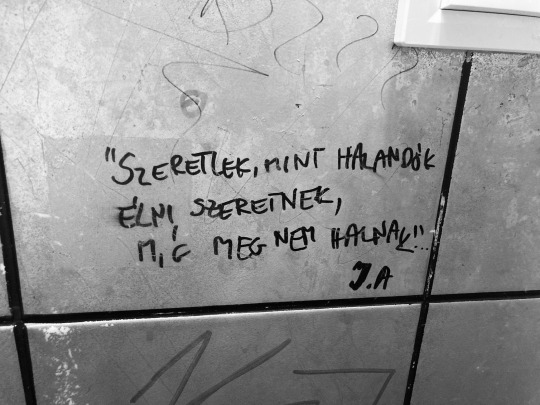 "SZERETLEK, MINT HALANDÓK
ÉLNI SZERETNEK,
MÍG MEG NEM HALNAK"...
J.A